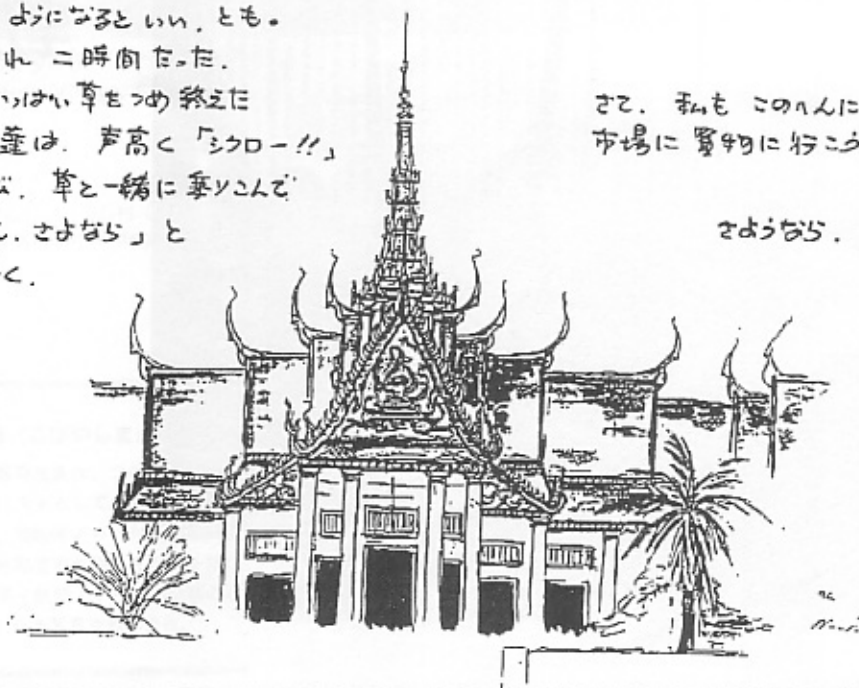 ようになるといい、とも。
れ 二時間たった。
いっぱい草をつめ終えた
蓮は、声高く「シクロー!!」
、草と一緒に乗りこんで
、さよなら」と
く.
さて、私も このへんに
市場に買物に行こう
さようなら.